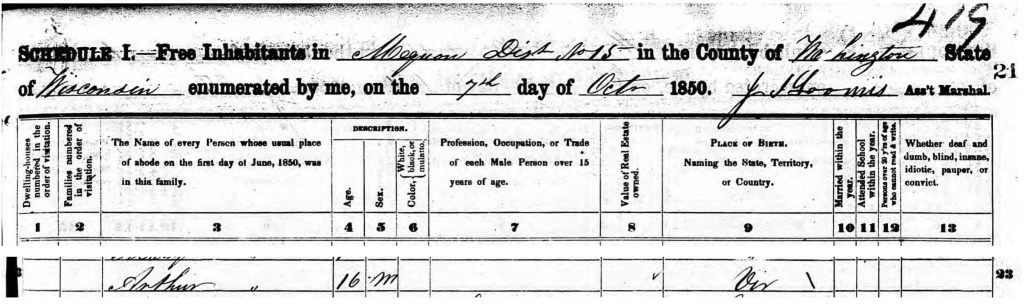 419
SCHEDULE I.—Free Inhabitants in Mequon Dist No 15 in the County of Washington State
21
of Wisconsin enumerated by me, on the 7th day of Octr 1850. J Loomis Ass't Marshal.
Dwelling-houses numbered in the order of visitation.
Families numbered in the order of visitation.
The Name of every Person whose usual place of abode on the first day of June, 1850, was in this family.
DESCRIPTION.
Age.
Sex.
Color, { White, black, or mulatto.
Profession, Occupation, or Trade of each Male Person over 15 years of age.
Value of Real Estate owned.
PLACE OF BIRTH.
Naming the State, Territory, or Country.
Married within the year.
Attended School within the year.
Persons over 20 y'rs of age who cannot read & write.
Whether deaf and dumb, blind, insane, idiotic, pauper, or convict.
1 2 3 4 5 6 7 8 9 10 11 12 13
Arthur " 16 M " \
23